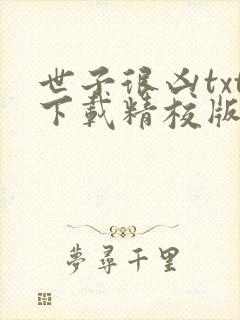 世子很凶txt
下載精校版
夢尋千里